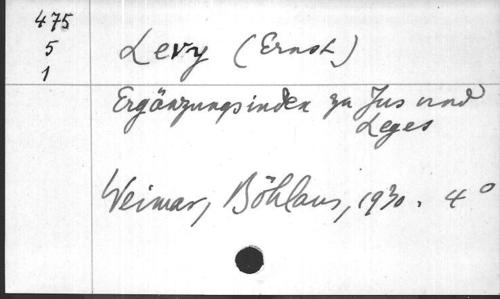 475
5
1
Levy (Ernst)
Ergänzungsindex zu Jus und
Leges
Weimar, Böhlaus, 1930. 4°